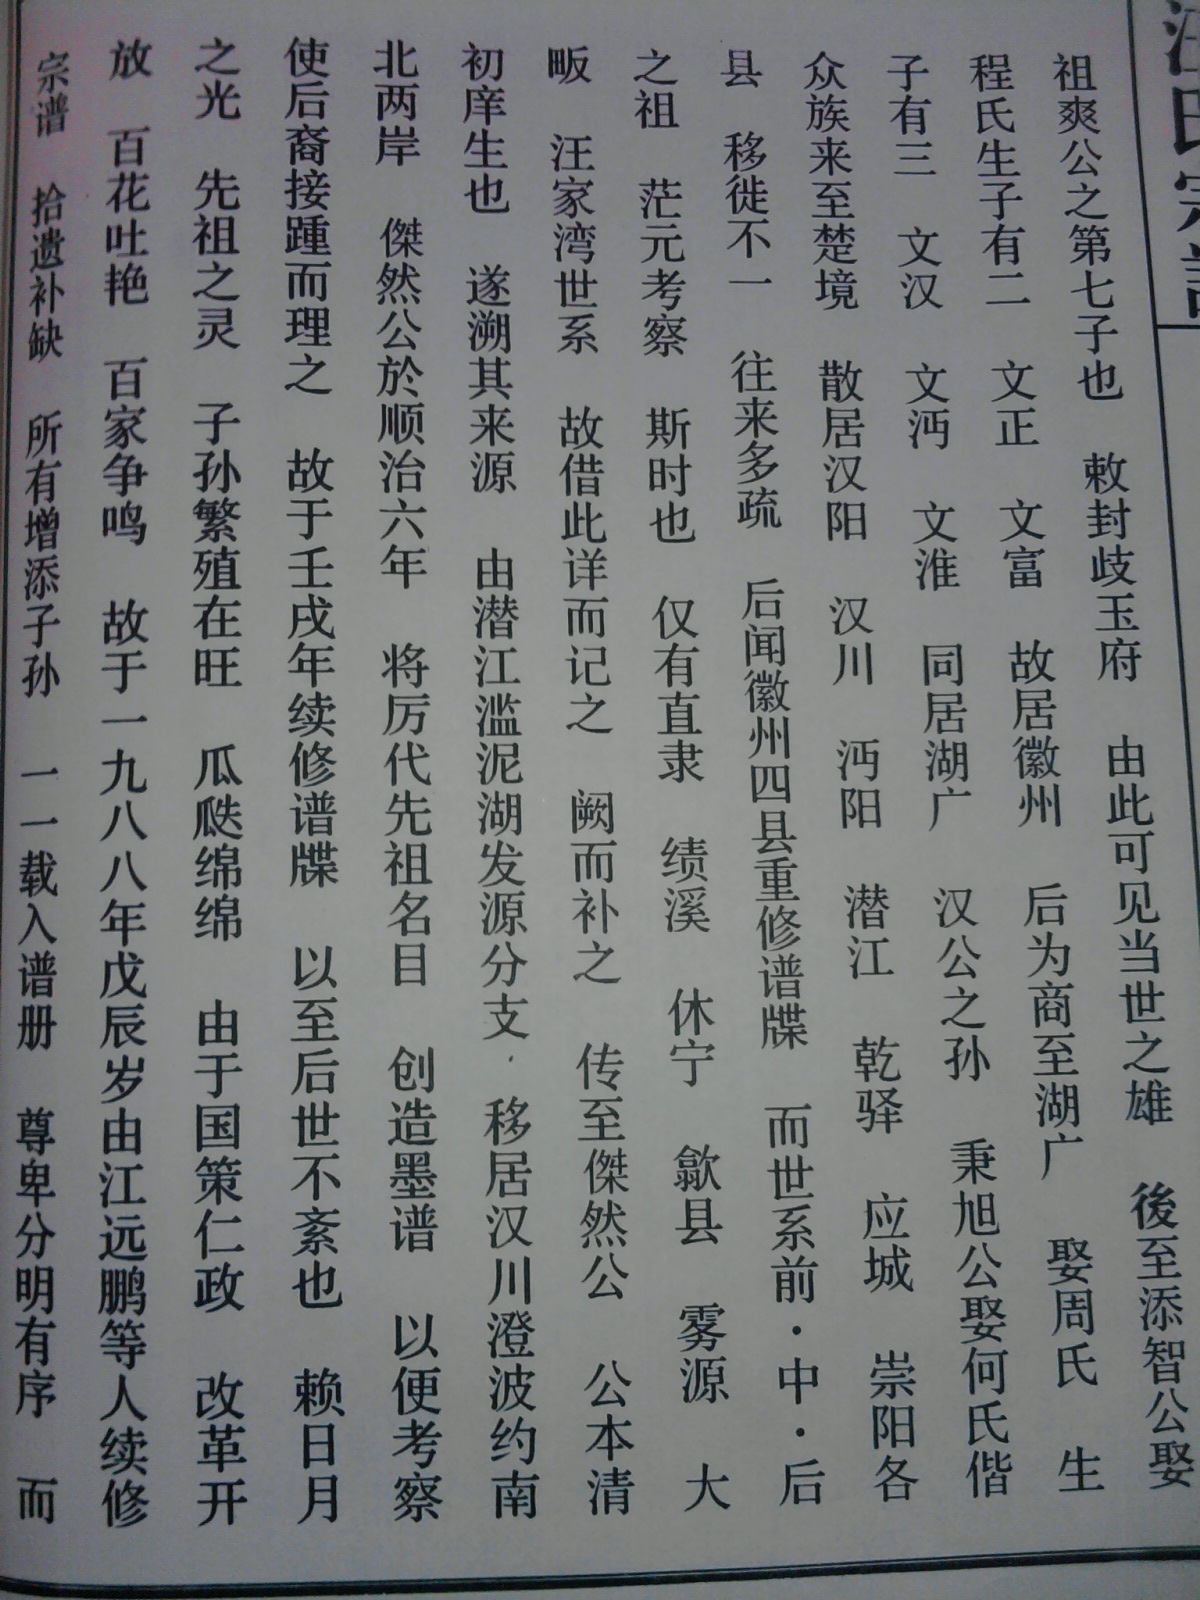 汪氏宗譜
祖爽公之第七子也 敕封歧玉府 由此可见当世之雄 後至添智公娶
程氏生子有二 文正 文富 故居徽州 后为商至湖广 娶周氏 生
子有三 文汉 文沔 文淮 同居湖广 汉公之孙 秉旭公娶何氏偕
众族来至楚境 散居汉阳 汉川 沔阳 潜江 乾驿 应城 崇阳各
县 移徙不一 往来多疏 后闻徽州四县重修谱牒 而世系前·中·后
之祖 茫元考察 斯时也 仅有直隶 绩溪 休宁 歙县 雾源 大
畈 汪家湾世系 故借此详而记之 阙而补之 传至傑然公 公本清
初庠生也 遂溯其来源 由潜江滥泥湖发源分支·移居汉川澄波约南
北两岸 傑然公於顺治六年 将厉代先祖名目 创造墨谱 以便考察
使后裔接踵而理之 故于壬戌年续修谱牒 以至后世不紊也 赖日月
之光 先祖之灵 子孙繁殖在旺 瓜瓞绵绵 由于国策仁政 改革开
放 百花吐艳 百家争鸣 故于一九八八年戊辰岁由江远鹏等人续修
宗谱 拾遗补缺 所有增添子孙 一一载入谱册 尊卑分明有序 而